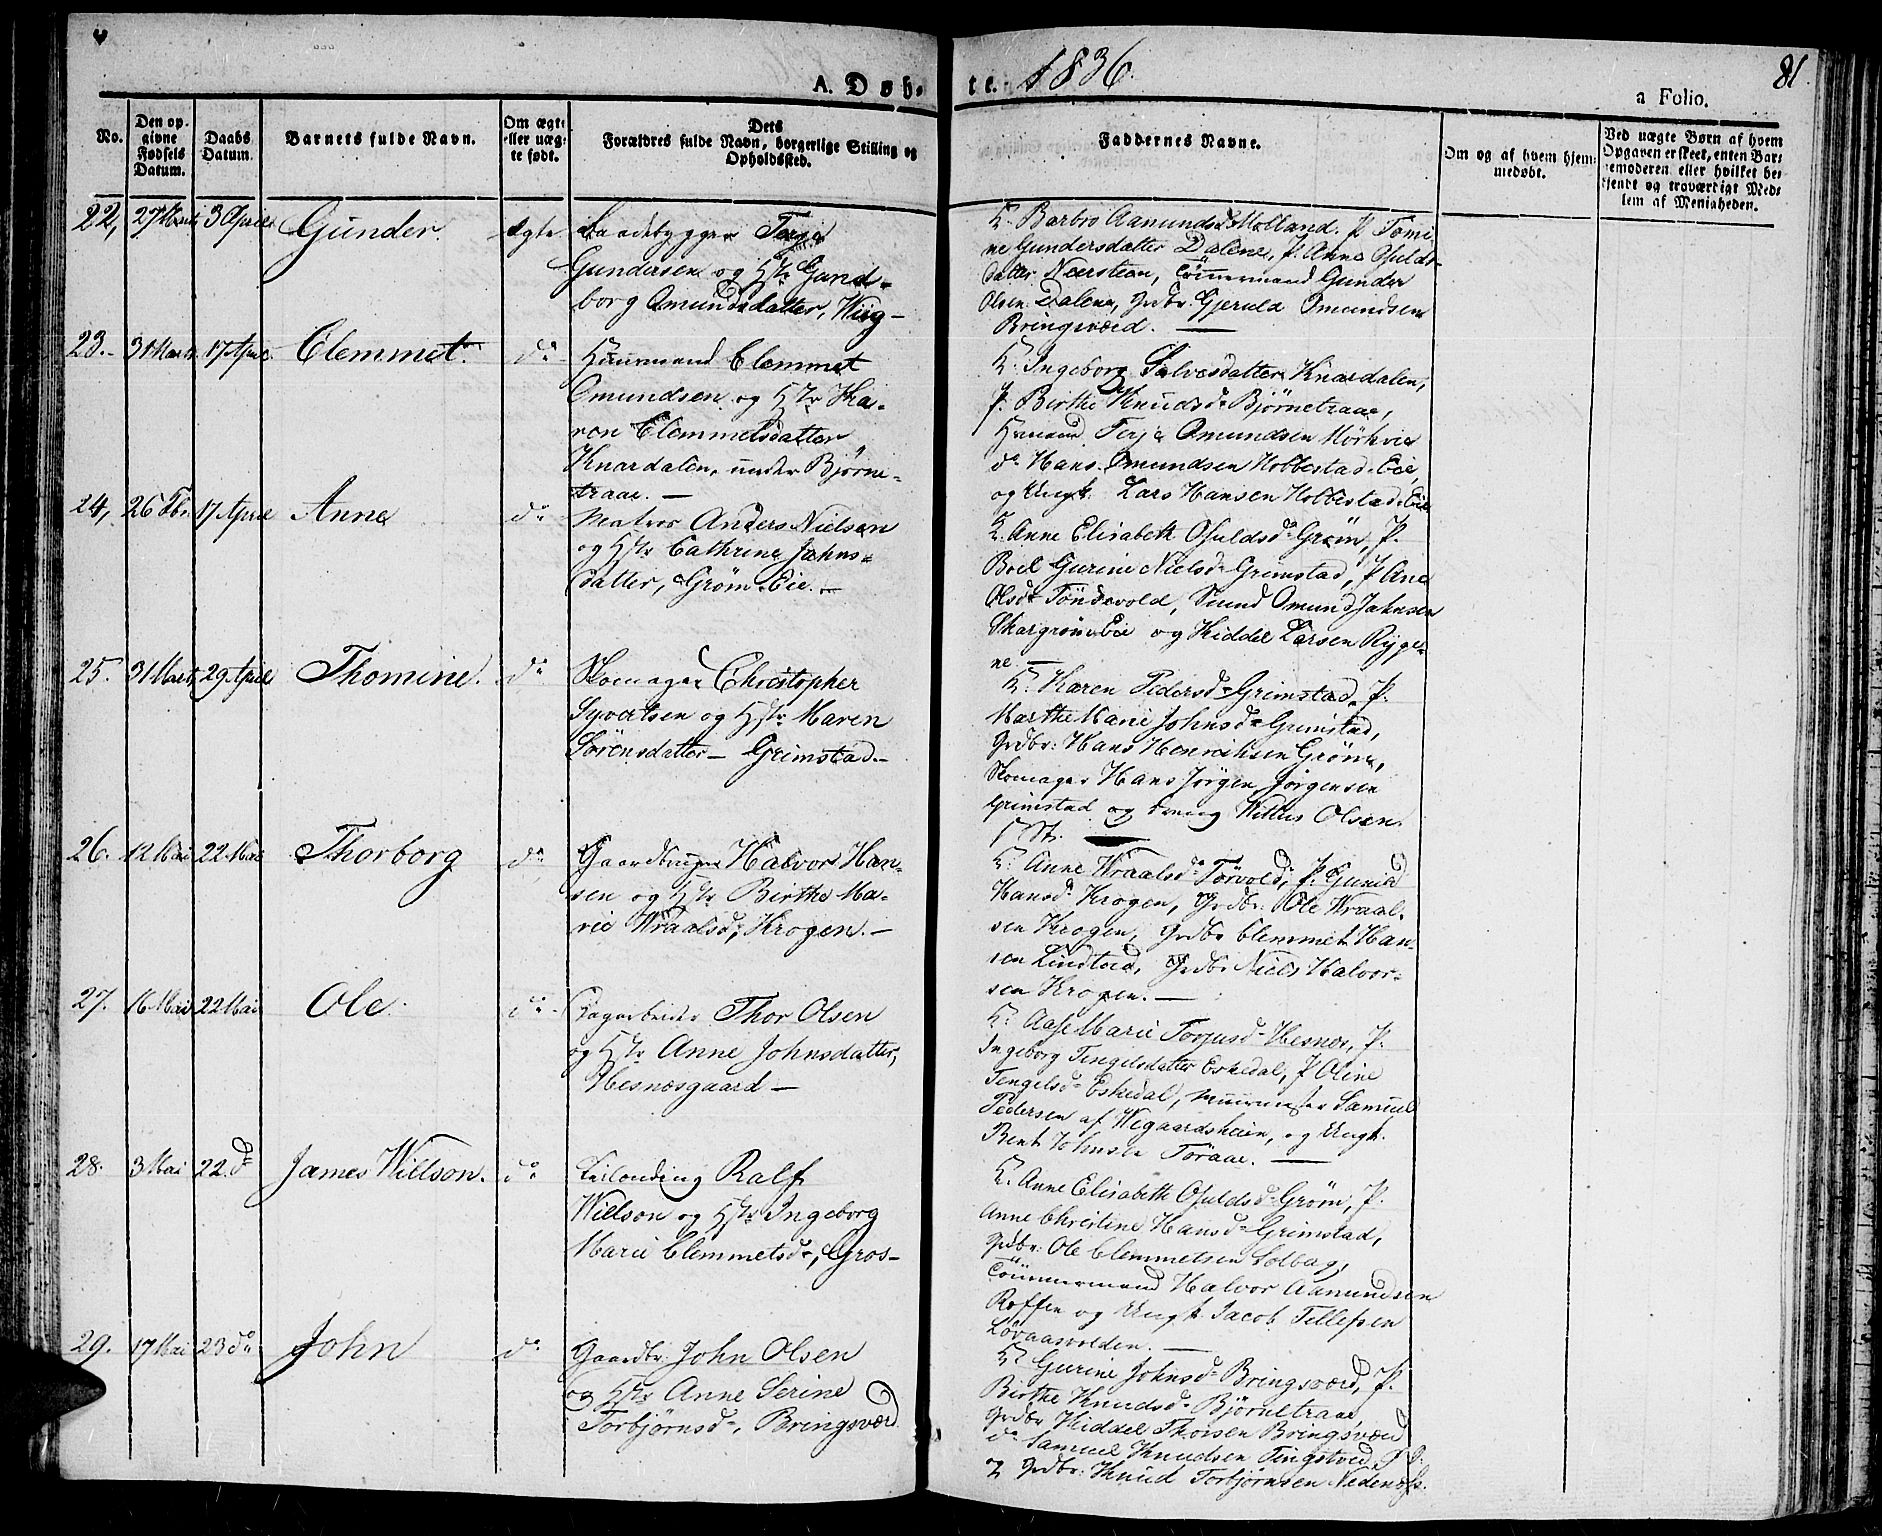 A. Døb-
te. 1836.
81.
a Folio.
No.
Den op-
givne
Fødsels
Datum.
Daabs
Datum.
Barnets fulde Navn.
Om ægte
eller uæg-
te født.
Dets
Forældres fulde Navn, borgerlige Stilling og
Opholdssted.
Faddernes Navne.
Om og af hvem hjem-
medøbt.
Ved uægte Børn af hvem
Opgaven er skeet, enten Bar-
nemoderen eller hvilket be-
kjendt og troværdigt Med-
lem af Menigheden.
22, 27 Marts 3 April Gunder. ægte Baadebygger Terje
Gundersen og Hstr Gund-
borg Omundsdatter, Wiig-
K. Barbro Aamundsd. Molland. P. Tomi-
ne Gundersdatter Dalene, P. Anne Osulds-
datter Næersteen, Tömmermand Gunder
Olsen Dalene, Grdbr. Gjeruld Omundsen
Bringsværd. —
23.- 31 Marts 17 April Clemmet. do. Huusmand Clemmet
Omundsen og Hstr Ka-
ren Clemmetsdatter
Knardalen, under Bjørne-
traae. —
K. Ingeborg Salvesdatter Knardalen,
P. Birthe Knudsd. Bjørnetraae,
Hmand Terje Omundsen Mörkvie
do Hans Omundsen Hobbestad-Eie,
og Ungk. Lars Hansen Hobbestad-Eie
24, 26 Fbr. 17 April Anne do Matros Anders Nielsen
og Hstr Cathrine Jahns-
datter, Grøm-Eie. —
K. Anne Elisabeth Osuldsd. Grøm, P.
Boel Gurine Nielsd. Grimstad, P. Ane
Olsd. Töndevold, Omund Jahnsen
Skargrøm-Eie og Kiddel Larsen Ryge-
ne —
25. 31 Marts 29 April Thomine. do Skomager Christopher
Syvertsen og Hstr Maren
Sørensdatter — Grimstad. —
K. Karen Pedersd. Grimstad, P.
Marthe Marie Johnsd. Grimstad,
Grdbr: Hans Henrichsen Grøm,
Skomager Hans Jörgen Jörgensen
Grimstad og Dreng Olsen
26. 12 Mai 22 Mai Thorborg do Gaardbruger Halvor Han-
sen og Hstr Birthe Ma-
rie Wraalsd. Krogen. —
K. Anne Wraalsd. Törvold, P. Gunild
Hansd. Krogen, Grdbr: Ole Wraal-
sen Krogen, Grdbr Clemmet Han-
sen Lindtved, Grdbr Niels Halvor-
sen Krogen. —
27. 16 Mai 22 Mai Ole. do. Dagarbeider Thor Olsen
og Hstr Anne Johnsdatter,
Hesnæsgaard —
K. Aase Marie Torjusd. Hesnæs, P.
Ingeborg Tengelsdatter Eskedal, P. Oline
Tengelsd. Eskedal, Muurmester Samuel
Pedersen af Wegaardsheien, og Ungk.
Bent Johnsen Töraae. —
28. 3 Mai 22 do James Willson. do Leilending Ralf
Wielson og Hstr Ingeborg
Marie Clemmetsd., Gros-
K. Anne Elisabeth Osuldsd. Grøm, P.
Anne Christine Hansd. Grimstad,
Grdbr: Ole Clemmetsen Solbag,
Tömmermand Halvor Aamundsen
Roffen og Ungk. Jacob Tellefsen
Lövaasvolden. —
29. 17 Mai 23 do John do Gaardbr. John Olsen
og Hstr Anne Serine
Torbjørnsd., Bringsværd
K. Gurine Johnsd. Bringsværd, P.
Birthe Knudsd. Bjørnetraae,
Grdbr Kiddel Thorsen Bringsværd
do Samuel Knudsen Tingstved,
og Grdbr: Knud Torbjørnsen Nedenæss.